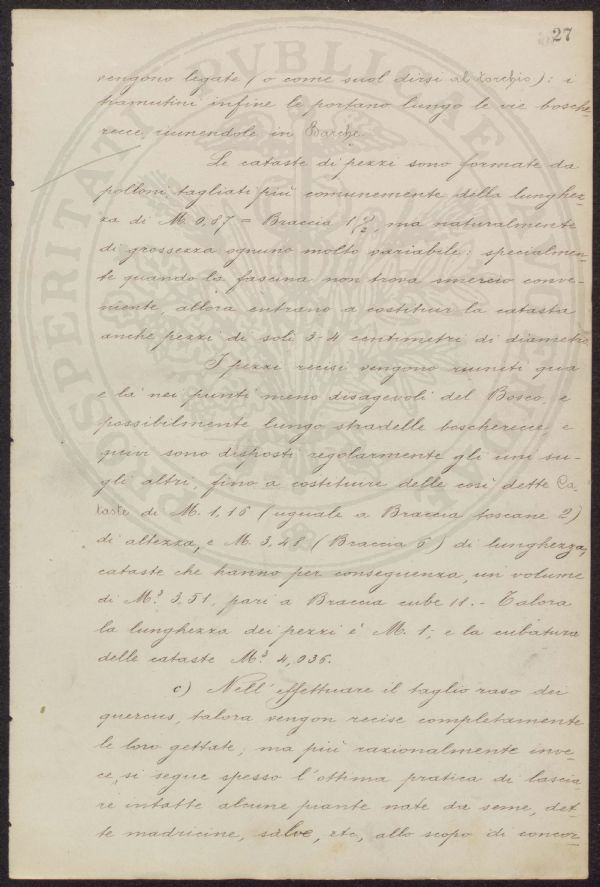 27
vengono legate (o come suol dirsi al torchio): i
tramutini infine le portano lungo le vie bosche-
recce, riunendole in Barche.
Le cataste di pezzi sono formate da
polloni tagliati più comunemente della lunghez-
za di M. 0,87 = Braccia 1 1/2, ma naturalmente
di grossezza ognuno molto variabile: specialmen-
te quando la fascina non trova smercio conve-
niente, allora entrano a costituir la catasta
anche pezzi di soli 3-4 centimetri di diametro.
I pezzi recisi vengono riuniti qua
e là nei punti meno disagevoli del Bosco, e
possibilmente lungo stradelle boscherecce, e
quivi sono disposti regolarmente gli uni su-
gli altri, fino a costituire delle così dette Ca-
taste di M. 1,16 (uguale a Braccia toscane 2)
di altezza, e M. 3,48 (Braccia 6) di lunghezza,
cataste che hanno per conseguenza, un volume
di M.³ 3,51, pari a Braccia cube 18. - Talora
la lunghezza dei pezzi è M. 1,- e la cubatura
delle cataste M.³ 4,036.
c) Nell'effettuare il taglio raso dei
quercus, talora vengon recise completamente
le loro gettate; ma più razionalmente inve-
ce, si segue spesso l'ottima pratica di lascia-
re intatte alcune piante nate da seme, det-
te madricine, salve, etc, allo scopo di concor-
PVBLICAE
PROSPERITATI